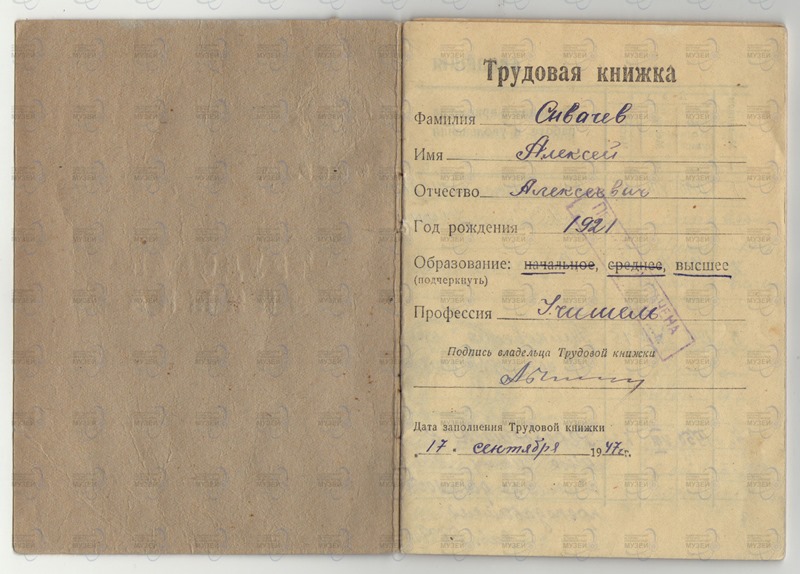 Трудовая книжка
Фамилия Сивачев
Имя Алексей
Отчество Алексеевич
Год рождения 1921
Образование: начальное, среднее, высшее
(подчеркнуть)
Профессия Учитель
Подпись владельца Трудовой книжки
Дата заполнения Трудовой книжки
„17. сентября 1947 г.